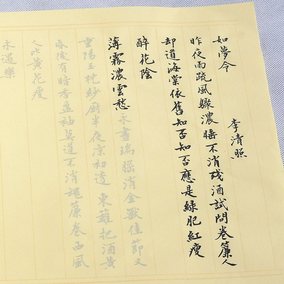 如夢令　李清照
昨夜雨疏風驟濃睡不消残酒試問卷簾人
却道海棠依舊知否知否應是綠肥紅瘦
醉花陰
薄霧濃雲愁永晝瑞腦消金獸佳節又
重陽玉枕紗廚半夜涼初透東籬把酒黃
昏後有暗香盈袖莫道不消魂簾卷西風
人比黃花瘦
永遇樂